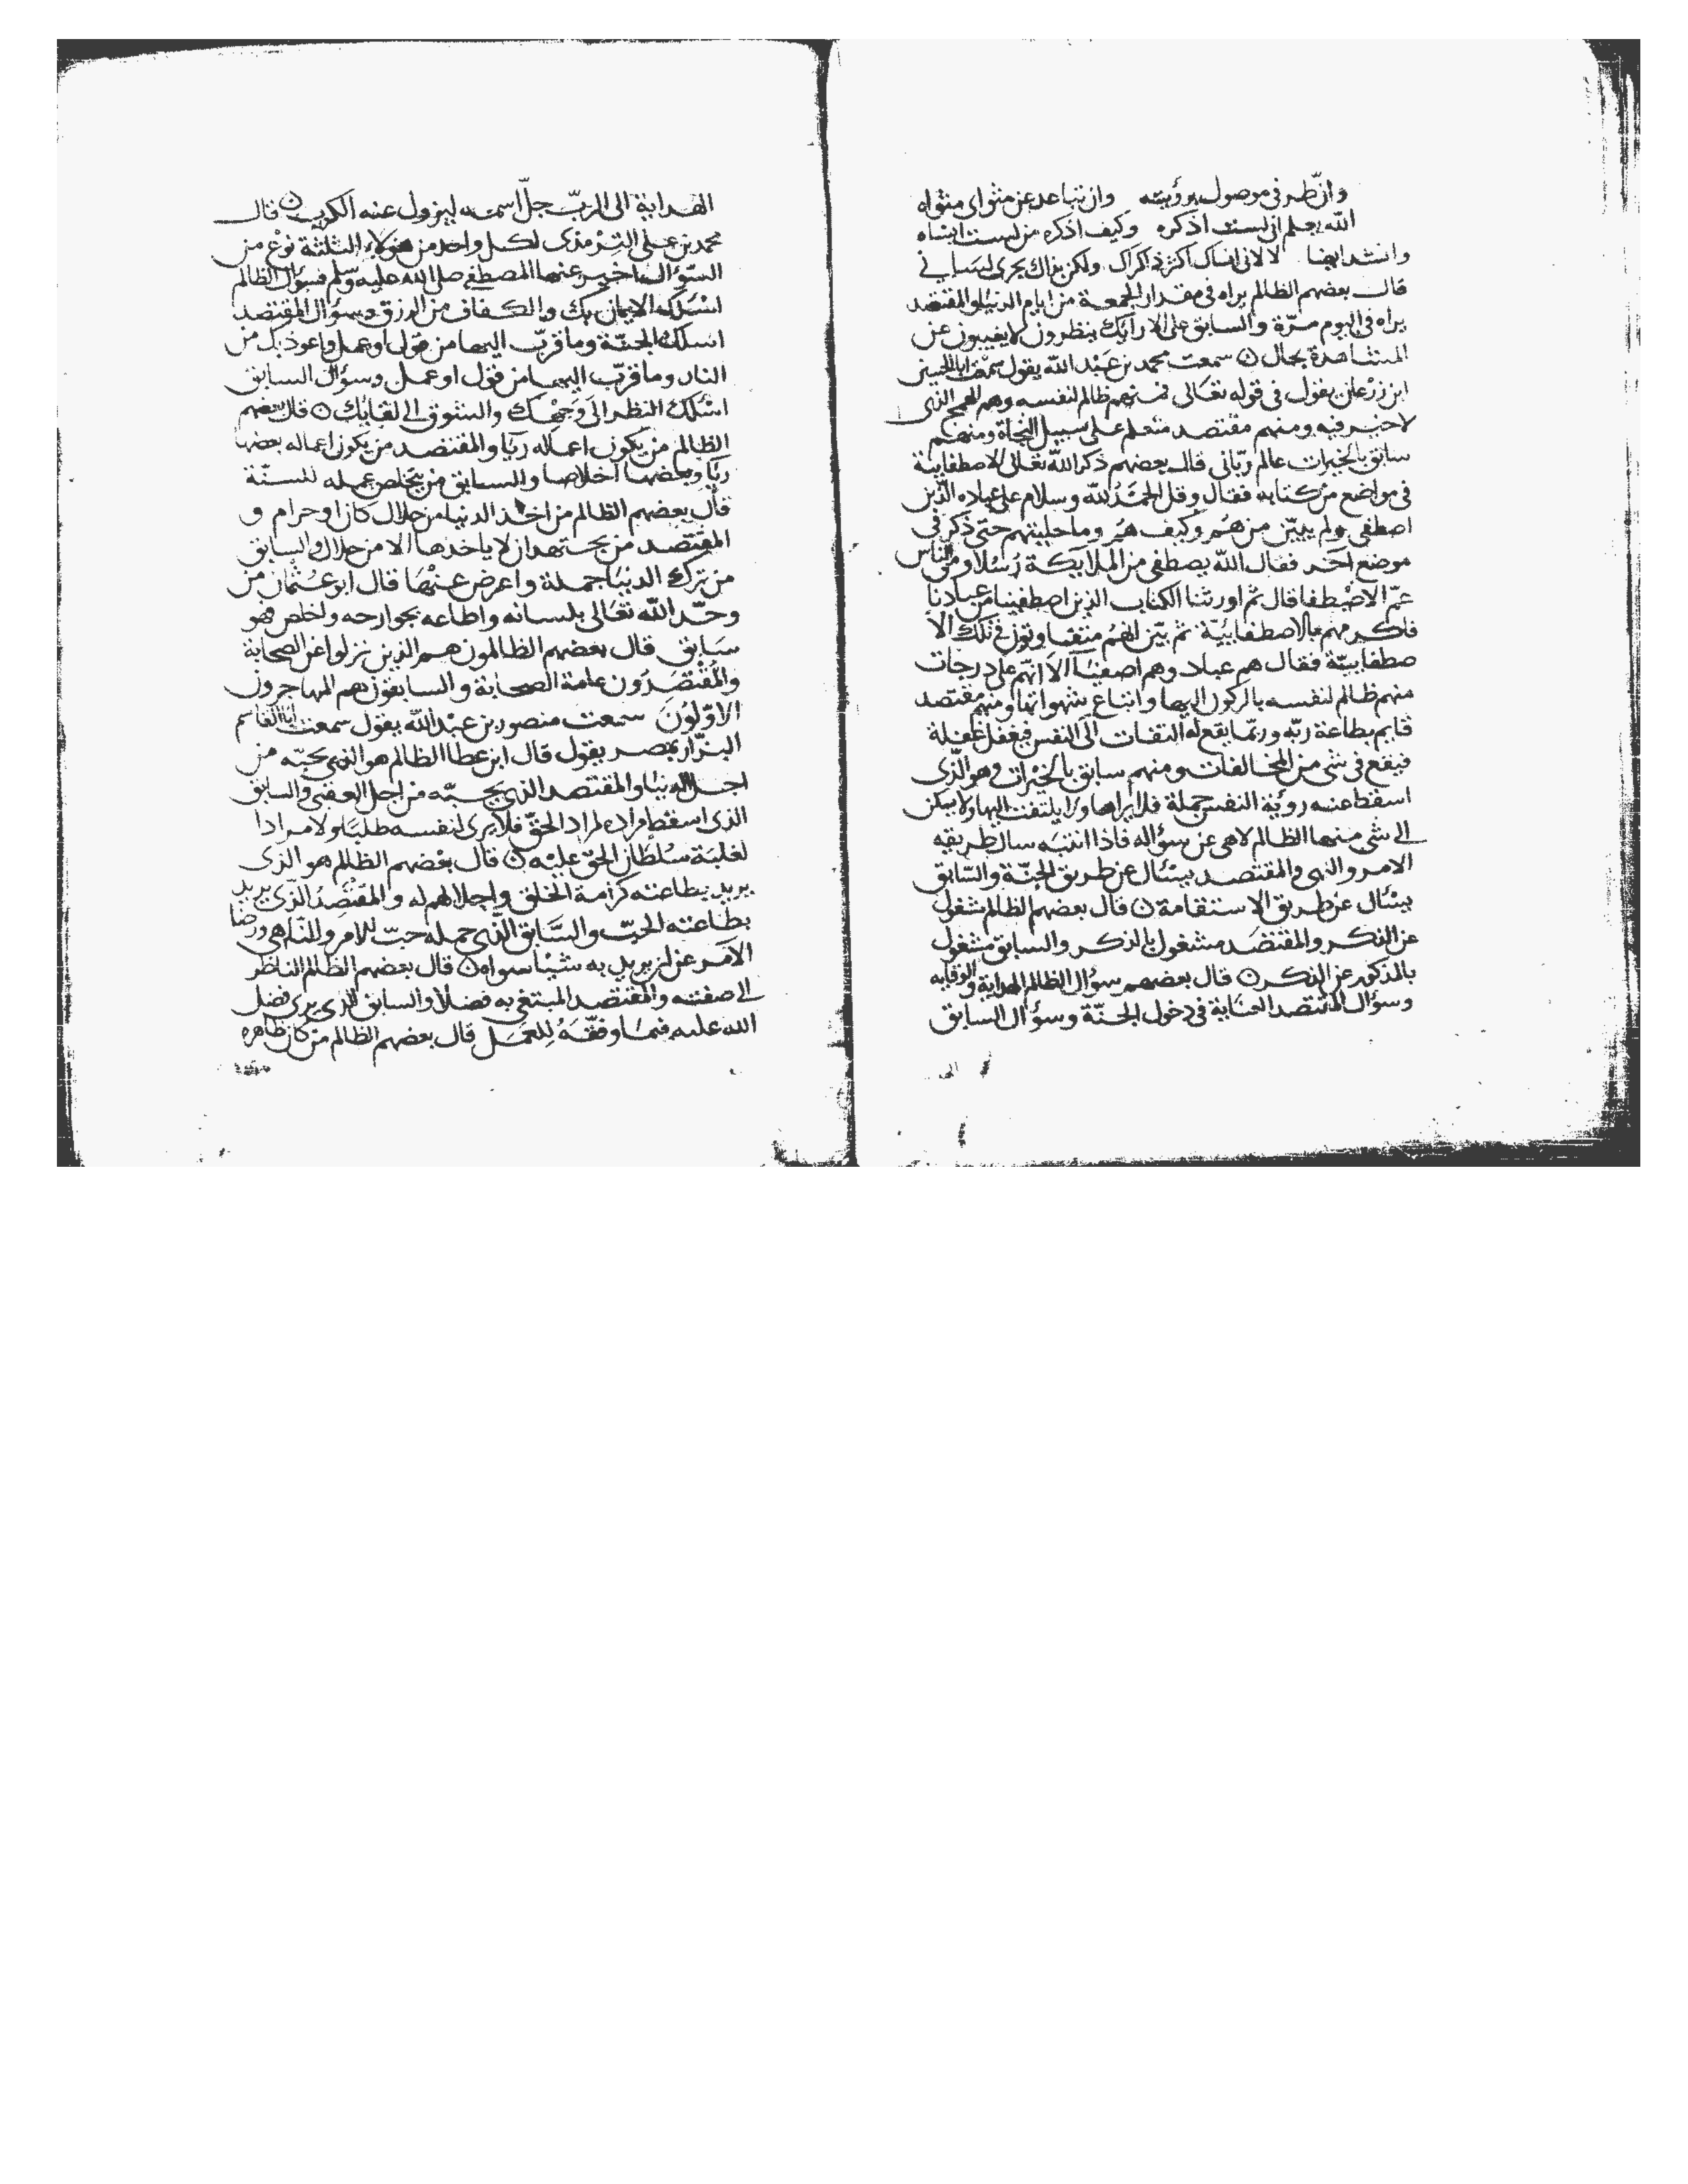 وان طرفى موصول برؤيته وان تباعد عن مثواى مثواه
الله يعلم انى لست اذكره وكيف اذكره من لست انساه
وانشد ايضا لا لانى انساك اكثر ذكراك ولكن بذاك يجرى لسانى
قال بعضهم الظالم يراه فى مقدار الجمعة من ايام الدنيا والمقتصد
يراه فى اليوم مرّة والسابق على الارايك ينظرون لا يغيبون عن
المشاهدة بحال ن سمعت محمد بن عبد الله يقول سمعت ابا الحسين
ابن زرعان يقول فى قوله تعالى فمنهم ظالم لنفسه وهم الهمج الذى
لا خير فيه ومنهم مقتصد متعلم على سبيل النجاة ومنهم
سابق بالخيرات عالم ربّانى قال بعضهم ذكر الله تعالى الاصطفاييّة
فى مواضع من كتابه فقال وقل الحمد لله وسلام على عباده الذين
اصطفى ولم يبيّن من هم وكيف هم وما حليتهم حتى ذكر فى
موضع آخر فقال الله يصطفى من الملايكة رسلا ومن الناس
عمّ الاصطفا قال ثم اورثنا الكتاب الذين اصطفينا من عبادنا
فاكرمهم بالاصطفاييّة ثم بيّن انهم متفاوتون فى تلك الا
صطفاييّة فقال هم عباد وهم اصفيا الا انهم على درجات
منهم ظالم لنفسه بالركون اليها واتباع شهواتها ومنهم مقتصد
قايم بطاعة ربّه وربّما يقع له التفات الى النفس فيغفل غفلة
فيقع فى شى من المخالفات ومنهم سابق بالخيرات وهو الذى
اسقط عنه رؤية النفس جملة فلا يراها ولا يلتفت اليها ولا يسكن
الى شى منها الظالم لاهى عن سؤاله فاذا انتبه سال طريقه
الامر والنهى والمقتصد يسئال عن طريق الجنّة والسّابق
يسئال عن طريق الاستقامة ن قال بعضهم الظالم مشغول
عن الذكر والمقتصد مشغول بالذكر والسابق مشغول
بالمذكور عن الذكر ن قال بعضهم سؤال الظالم الهداية والوقايه
وسؤال المقتصد العناية فى دخول الجنّة وسؤال السابق
الهداية الى الربّ جلّ اسمه ليزول عنه الكرب ن قال
محمد بن على الترمذى لكل واحد من هؤلاء الثلثة نوع من
السّؤال اخبر عنها المصطفى صلى الله عليه وسلم فسؤال الظالم
اسئلك الايمان بك والكفاف من الرزق وسؤال المقتصد
اسلك الجنّة وما قرّب اليها من قول او عمل واعوذ بك من
النار وما قرّب اليها من قول او عمل وسؤال السابق
اسئلك النظر الى وجهك والشوق الى لقايك ن قال بعضهم
الظالم من يكون اعماله ريا والمقتصد من يكون اعماله بعضها
ريا وبعضها اخلاصا والسابق من يخلص عمله للسنّة
قال بعضهم الظالم من اخذ الدنيا من حلال كان او حرام و
المقتصد من يجتهد ان لا ياخذها الا من حلال والسابق
من ترك الدنيا جملة واعرض عنها قال ابو عثمان من
وحّد الله تعالى بلسانه واطاعه بجوارحه واخلص فهو
سابق قال بعضهم الظالمون هم الذين نزلوا عن الصحابة
والمقتصدون عامة الصحابة والسابقون هم المهاجرون
الاوّلون سمعت منصور بن عبد الله يقول سمعت ابا القاسم
البزّار بمصر يقول قال ابن عطا الظالم هو الذى يحبّه من
اجل الدنيا والمقتصد الذى يحبّه من اجل العقبى والسابق
الذى اسقط مراده لمراد الحقّ فلا يرى لنفسه طلبا ولا مرادا
لغلبة سلطان الحقّ عليه ن قال بعضهم الظالم هو الذى
يريد بطاعته كرامة الخلق واجلالهم له والمقتصد الذى يريد
بطاعته الحبّ والسّابق الذى حمله حبّ للامر وللنّاهى ورضا
الآمر عن ان يريد به شيئا سواه ن قال بعضهم الظالم الناظر
الى صفته والمقتصد المبتغى به فضلا والسابق الذى يرى فضل
الله عليه فيما وفّقه للعمل قال بعضهم الظالم من كان ظاهره